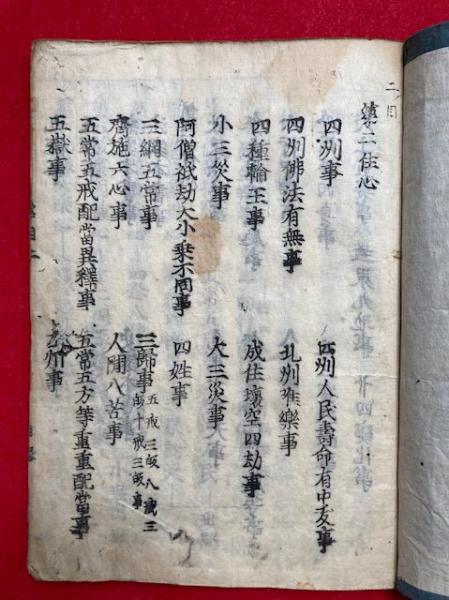 第二住心
四洲事
四洲人民壽命有中夭事
四洲佛法有無事
北洲唯樂事
四種輪王事
成住壞空四劫事
小三災事
大三災事
阿僧祇劫大小乘不同事
四姓事
三綱五常事
三歸事 五戒三皈八戒三皈十戒三皈事
齋施六心事
人間八苦事
五常五戒配當異釋事
五常五方等重重配當事
五嶽事
九州事